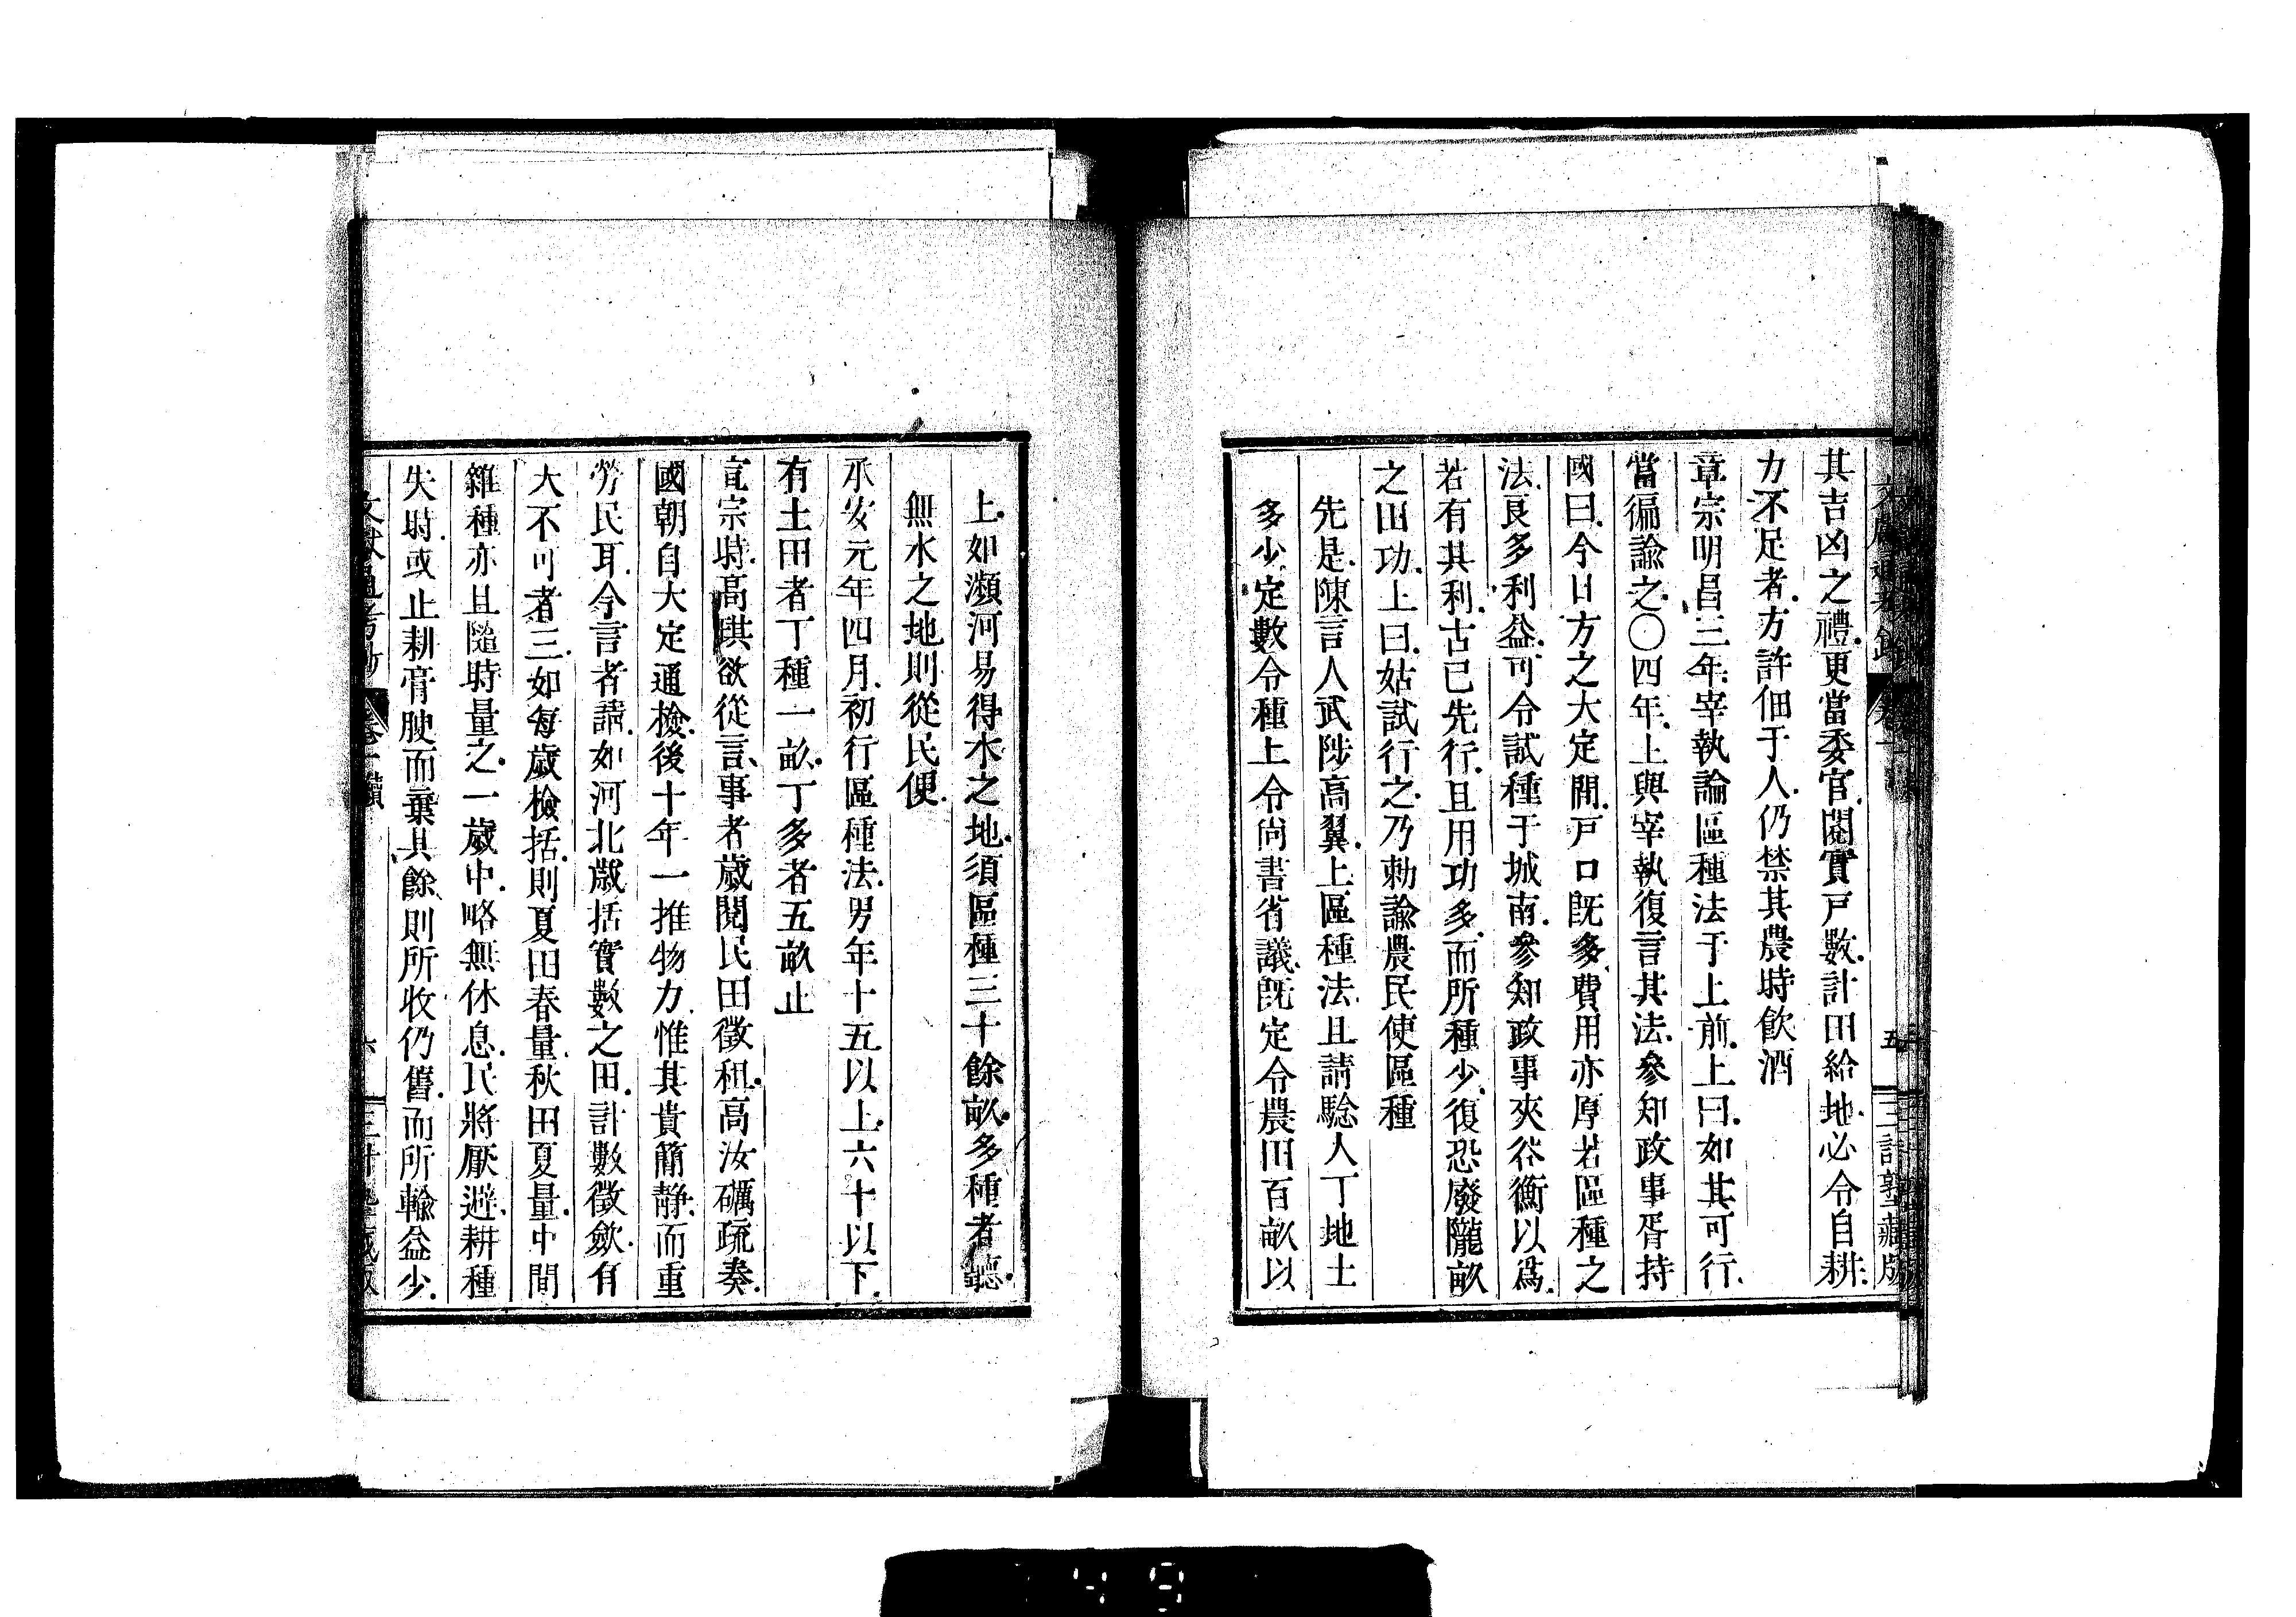 其吉凶之禮更當委官閱實戸數計田給地必令自耕
力不足者方許佃于人仍禁其農時飲酒
章宗明昌三年宰執論區種法于上前上曰如其可行
當徧諭之〇四年上與宰執復言其法參知政事胥持
國曰今日方之大定間戸口既多費用亦厚若區種之
法良多利益可令試種于城南參知政事夾谷衡以爲
若有其利古已先行且用功多而所種少復恐廢隴畝
之田功上曰姑試行之乃勅諭農民使區種
先是陳言人武陟高翼上區種法且請驗人丁地土
多少定數令種上令尚書省議既定令農田百畝以
上如瀕河易得水之地須區種三十餘畝多種者聽
無水之地則從民便
承安元年四月初行區種法男年十五以上六十以下
有土田者丁種一畝丁多者五畝止
宣宗時高琪欲從言事者歲閱民田徵租高汝礪疏奏
國朝自大定通檢後十年一推物力惟其貴簡靜而重
勞民耳今言者請如河北歲括實數之田計數徵斂有
大不可者三如每歲檢括則夏田春量秋田夏量中間
雜種亦且隨時量之一歲中略無休息民將厭避耕種
失時或止耕膏腴而棄其餘則所收仍舊而所輸益少